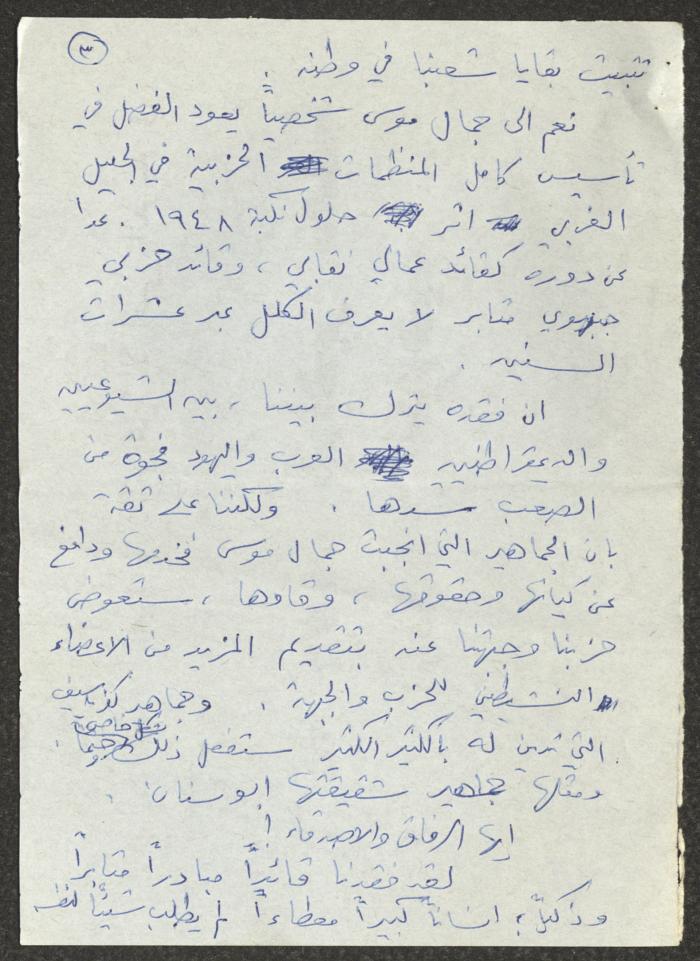 ٣
تثبيت بقايا شعبنا في وطنه .
نعم الى جمال موسى شخصياً يعود الفضل في
تأسيس كامل المنظمات الحزبية في الجليل
الغربي اثر حلول نكبة ١٩٤٨ . عدا
عن دوره كقائد عمالي نقابي ، وقائد حزبي
جبهوي مثابر لا يعرف الكلل عبر عشرات
السنين .
ان فقده يترك بيننا ، بين الشيوعيين
والديمقراطيين العرب واليهود فجوة من
الصعب سدها . ولكننا على ثقة
بان الجماهير التي انجبت جمال موسى فخدمها ودافع
عن كيانها وحقوقها ، وقادها ، ستعوض
حزبنا وجبهتنا عنه بتقديم المزيد من الاعضاء
النشيطين للحزب والجبهة . وجماهير كفرياسيف
التي تدين له بالكثير الكثير ستفعل ذلك حتماً .
ومثلها جماهير شقيقتها ابوسنان .
ايها الرفاق والاصدقاء !
لقد فقدنا قائداً مبادراً مثابراً
وذكياً ، انساناً كبيراً معطاءاً لم يطلب شيئاً لنفسه